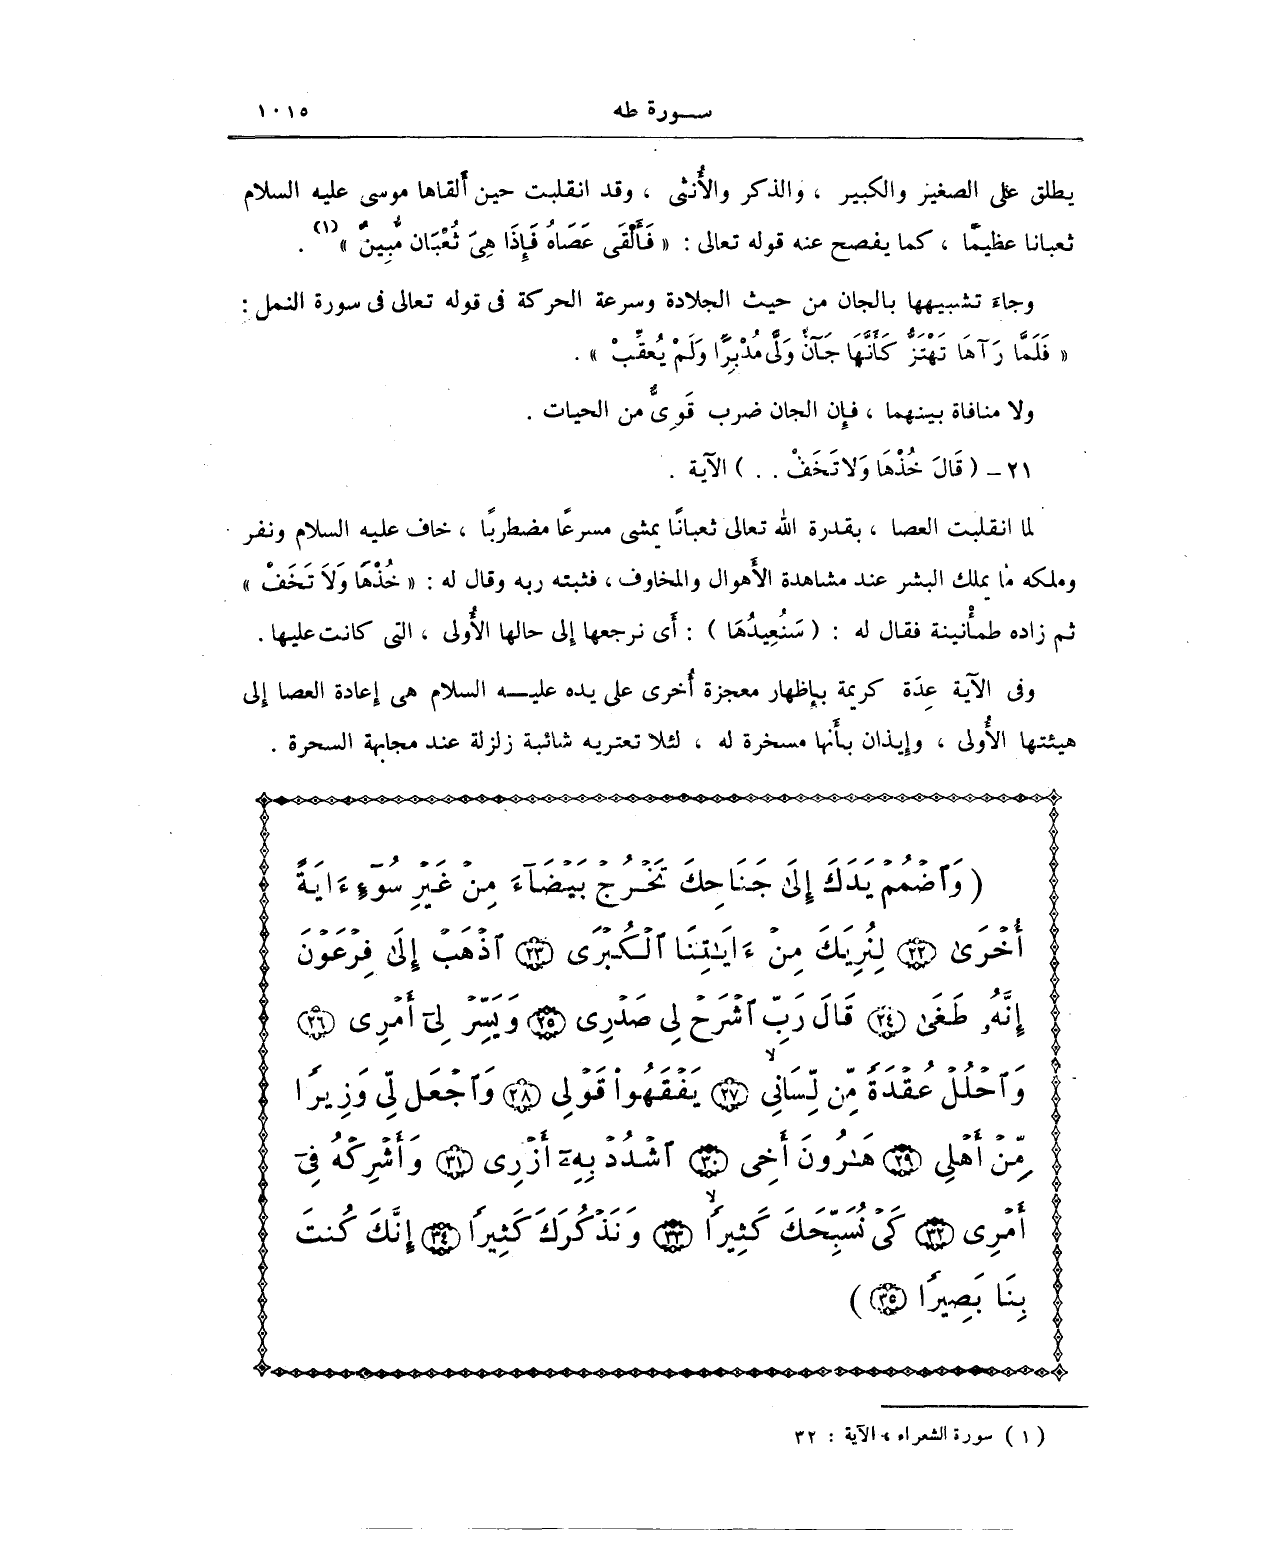 سورة طه ١٠١٥
يطلق على الصغير والكبير ، والذكر والأُنثى ، وقد انقلبت حين أَلقاها موسى عليه السلام
ثعبانا عظيمًا ، كما يفصح عنه قوله تعالى : « فَأَلْقَى عَصَاهُ فَإِذَا هِىَ ثُعْبَان مُّبِينٌ » (١) .
وجاءَ تشبيهها بالجان من حيث الجلادة وسرعة الحركة فى قوله تعالى فى سورة النمل :
« فَلَمَّا رَآهَا تَهْتَزُّ كَأَنَّهَا جَآنٌّ وَلَّى مُدْبِرًا وَلَمْ يُعَقِّبْ » .
ولا منافاة بينهما ، فإِن الجان ضرب قَوىٌّ من الحيات .
٢١ – ( قَالَ خُذْهَا وَلَا تَخَفْ . . ) الآية .
لما انقلبت العصا ، بقدرة الله تعالى ثعبانًا يمشى مسرعًا مضطربًا ، خاف عليه السلام ونفر
وملكه ما يملك البشر عند مشاهدة الأَهوال والمخاوف ، فثبته ربه وقال له : « خُذْهَا وَلَا تَخَفْ »
ثم زاده طمأْنينة فقال له : ( سَنُعِيدُهَا ) : أَى نرجعها إلى حالها الأُولى ، التى كانت عليها .
وفى الآية عِدَة كريمة بإِظهار معجزة أُخرى على يده عليه السلام هى إعادة العصا إلى
هيئتها الأُولى ، وإيذان بأَنها مسخرة له ، لئلا تعتريه شائبة زلزلة عند مجابهة السحرة .
( وَٱضْمُمْ يَدَكَ إِلَىٰ جَنَاحِكَ تَخْرُجْ بَيْضَآءَ مِنْ غَيْرِ سُوٓءٍ ءَايَةً
أُخْرَىٰ ﴿٢٢﴾ لِنُرِيَكَ مِنْ ءَايَٰتِنَا ٱلْكُبْرَى ﴿٢٣﴾ ٱذْهَبْ إِلَىٰ فِرْعَوْنَ
إِنَّهُۥ طَغَىٰ ﴿٢٤﴾ قَالَ رَبِّ ٱشْرَحْ لِى صَدْرِى ﴿٢٥﴾ وَيَسِّرْ لِىٓ أَمْرِى ﴿٢٦﴾
وَٱحْلُلْ عُقْدَةً مِّن لِّسَانِى ﴿٢٧﴾ يَفْقَهُوا۟ قَوْلِى ﴿٢٨﴾ وَٱجْعَل لِّى وَزِيرًا
مِّنْ أَهْلِى ﴿٢٩﴾ هَٰرُونَ أَخِى ﴿٣٠﴾ ٱشْدُدْ بِهِۦٓ أَزْرِى ﴿٣١﴾ وَأَشْرِكْهُ فِىٓ
أَمْرِى ﴿٣٢﴾ كَىْ نُسَبِّحَكَ كَثِيرًا ﴿٣٣﴾ وَنَذْكُرَكَ كَثِيرًا ﴿٣٤﴾ إِنَّكَ كُنتَ
بِنَا بَصِيرًا ﴿٣٥﴾ )
( ١ ) سورة الشعراء ، الآية : ٣٢